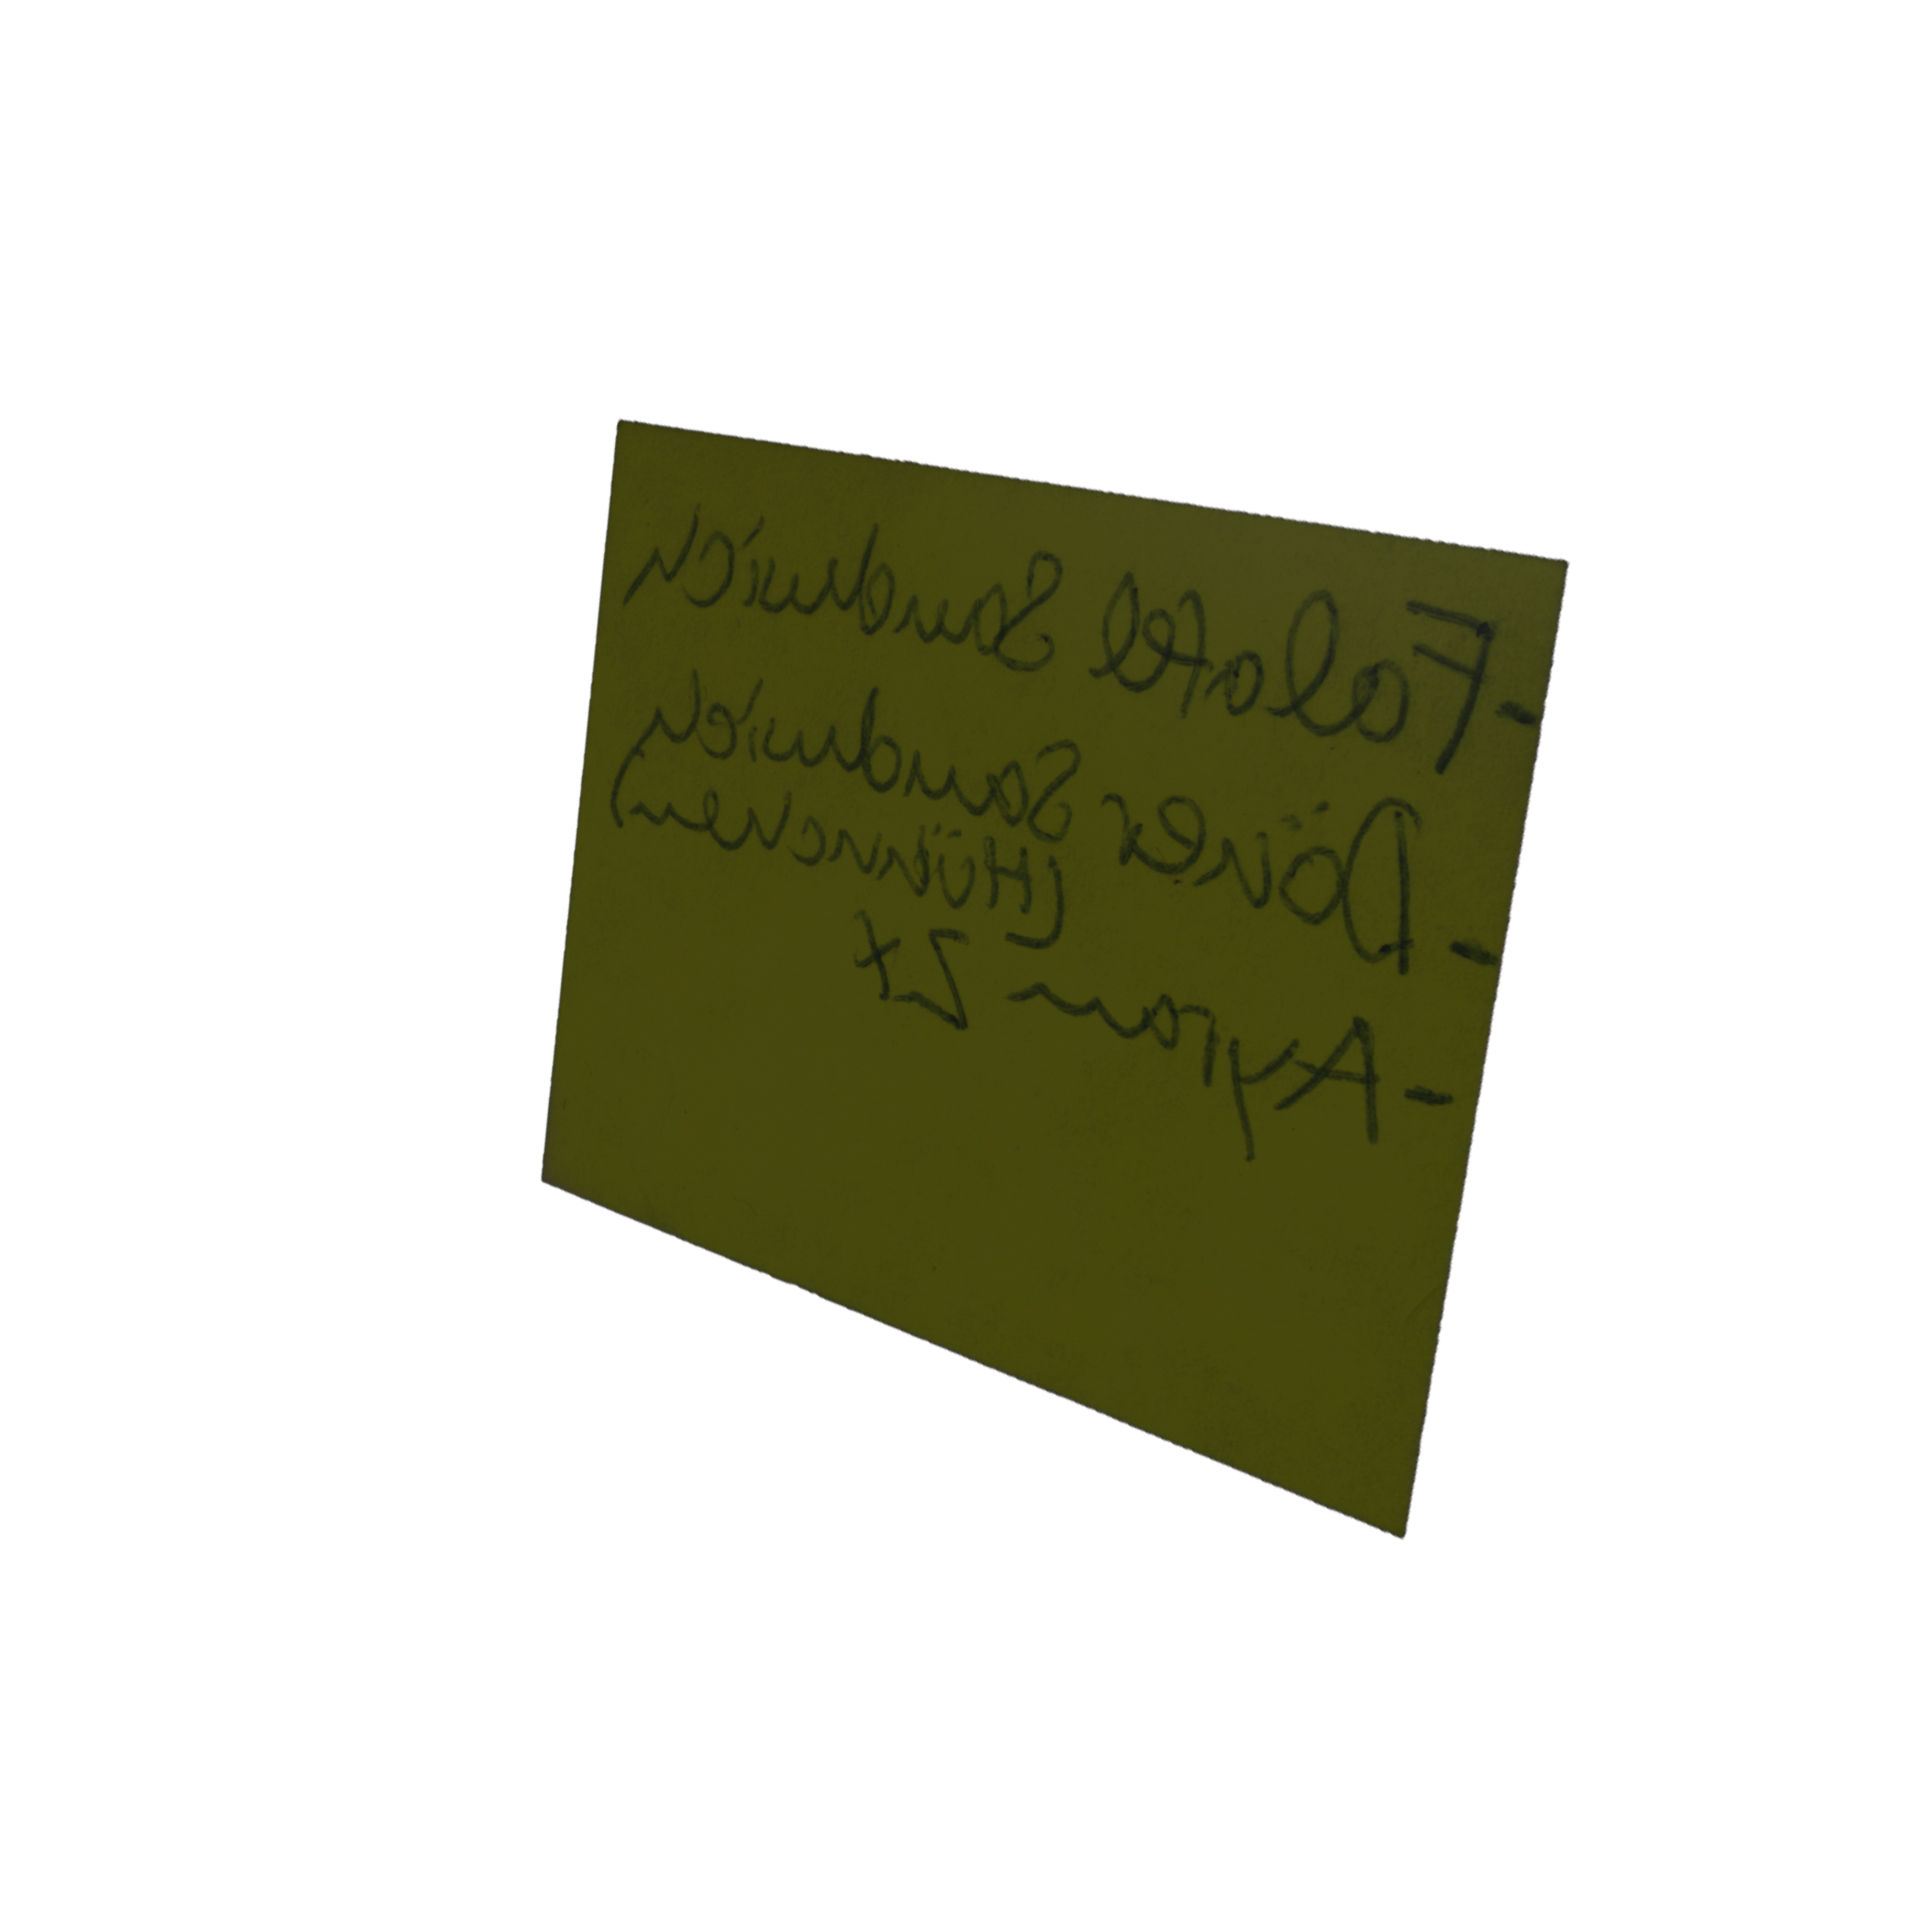 - Falafel Sandwich
- Döner Sandwich
(Hünchen)
- Ayran 2x